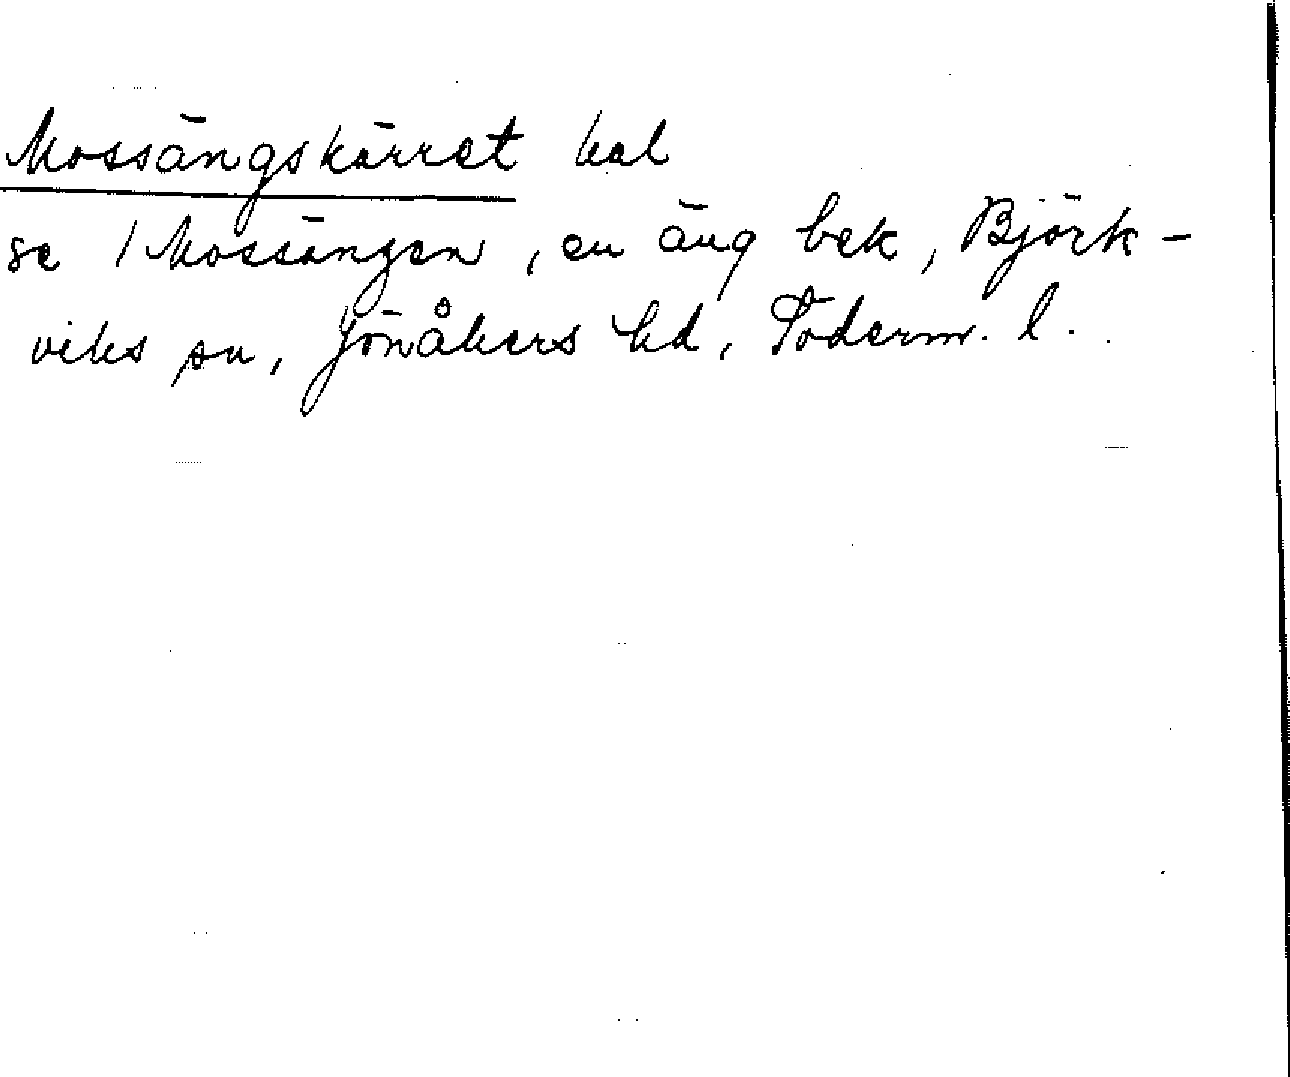 Mossängskärret kal
se 1 Mossängen, en äng bek, Björk-
viks sn, Jönåkers hd, Söderm. l.